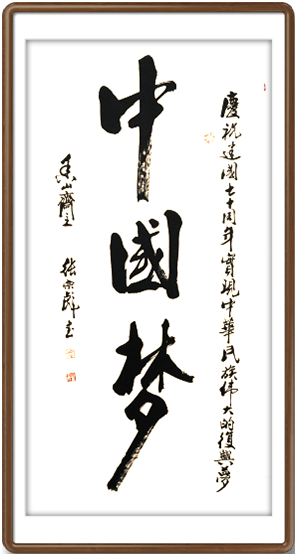 慶祝建國七十周年實現中華民族偉大的復興夢
中國梦
香山齋主